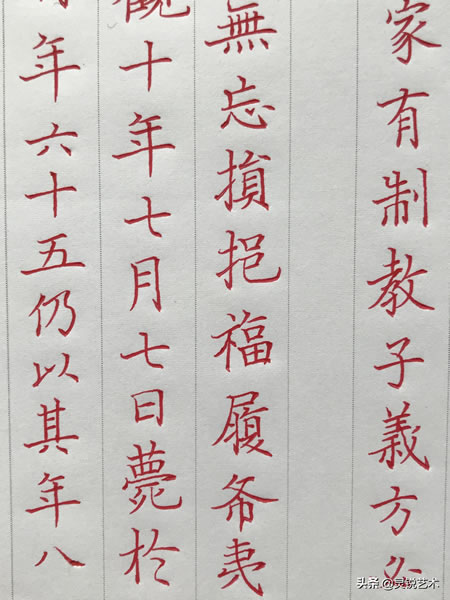 家有制教子義方
無忘損挹福履希夷
觀十年七月七日薨於
年六十五仍以其年八
头条 @灵锐艺术